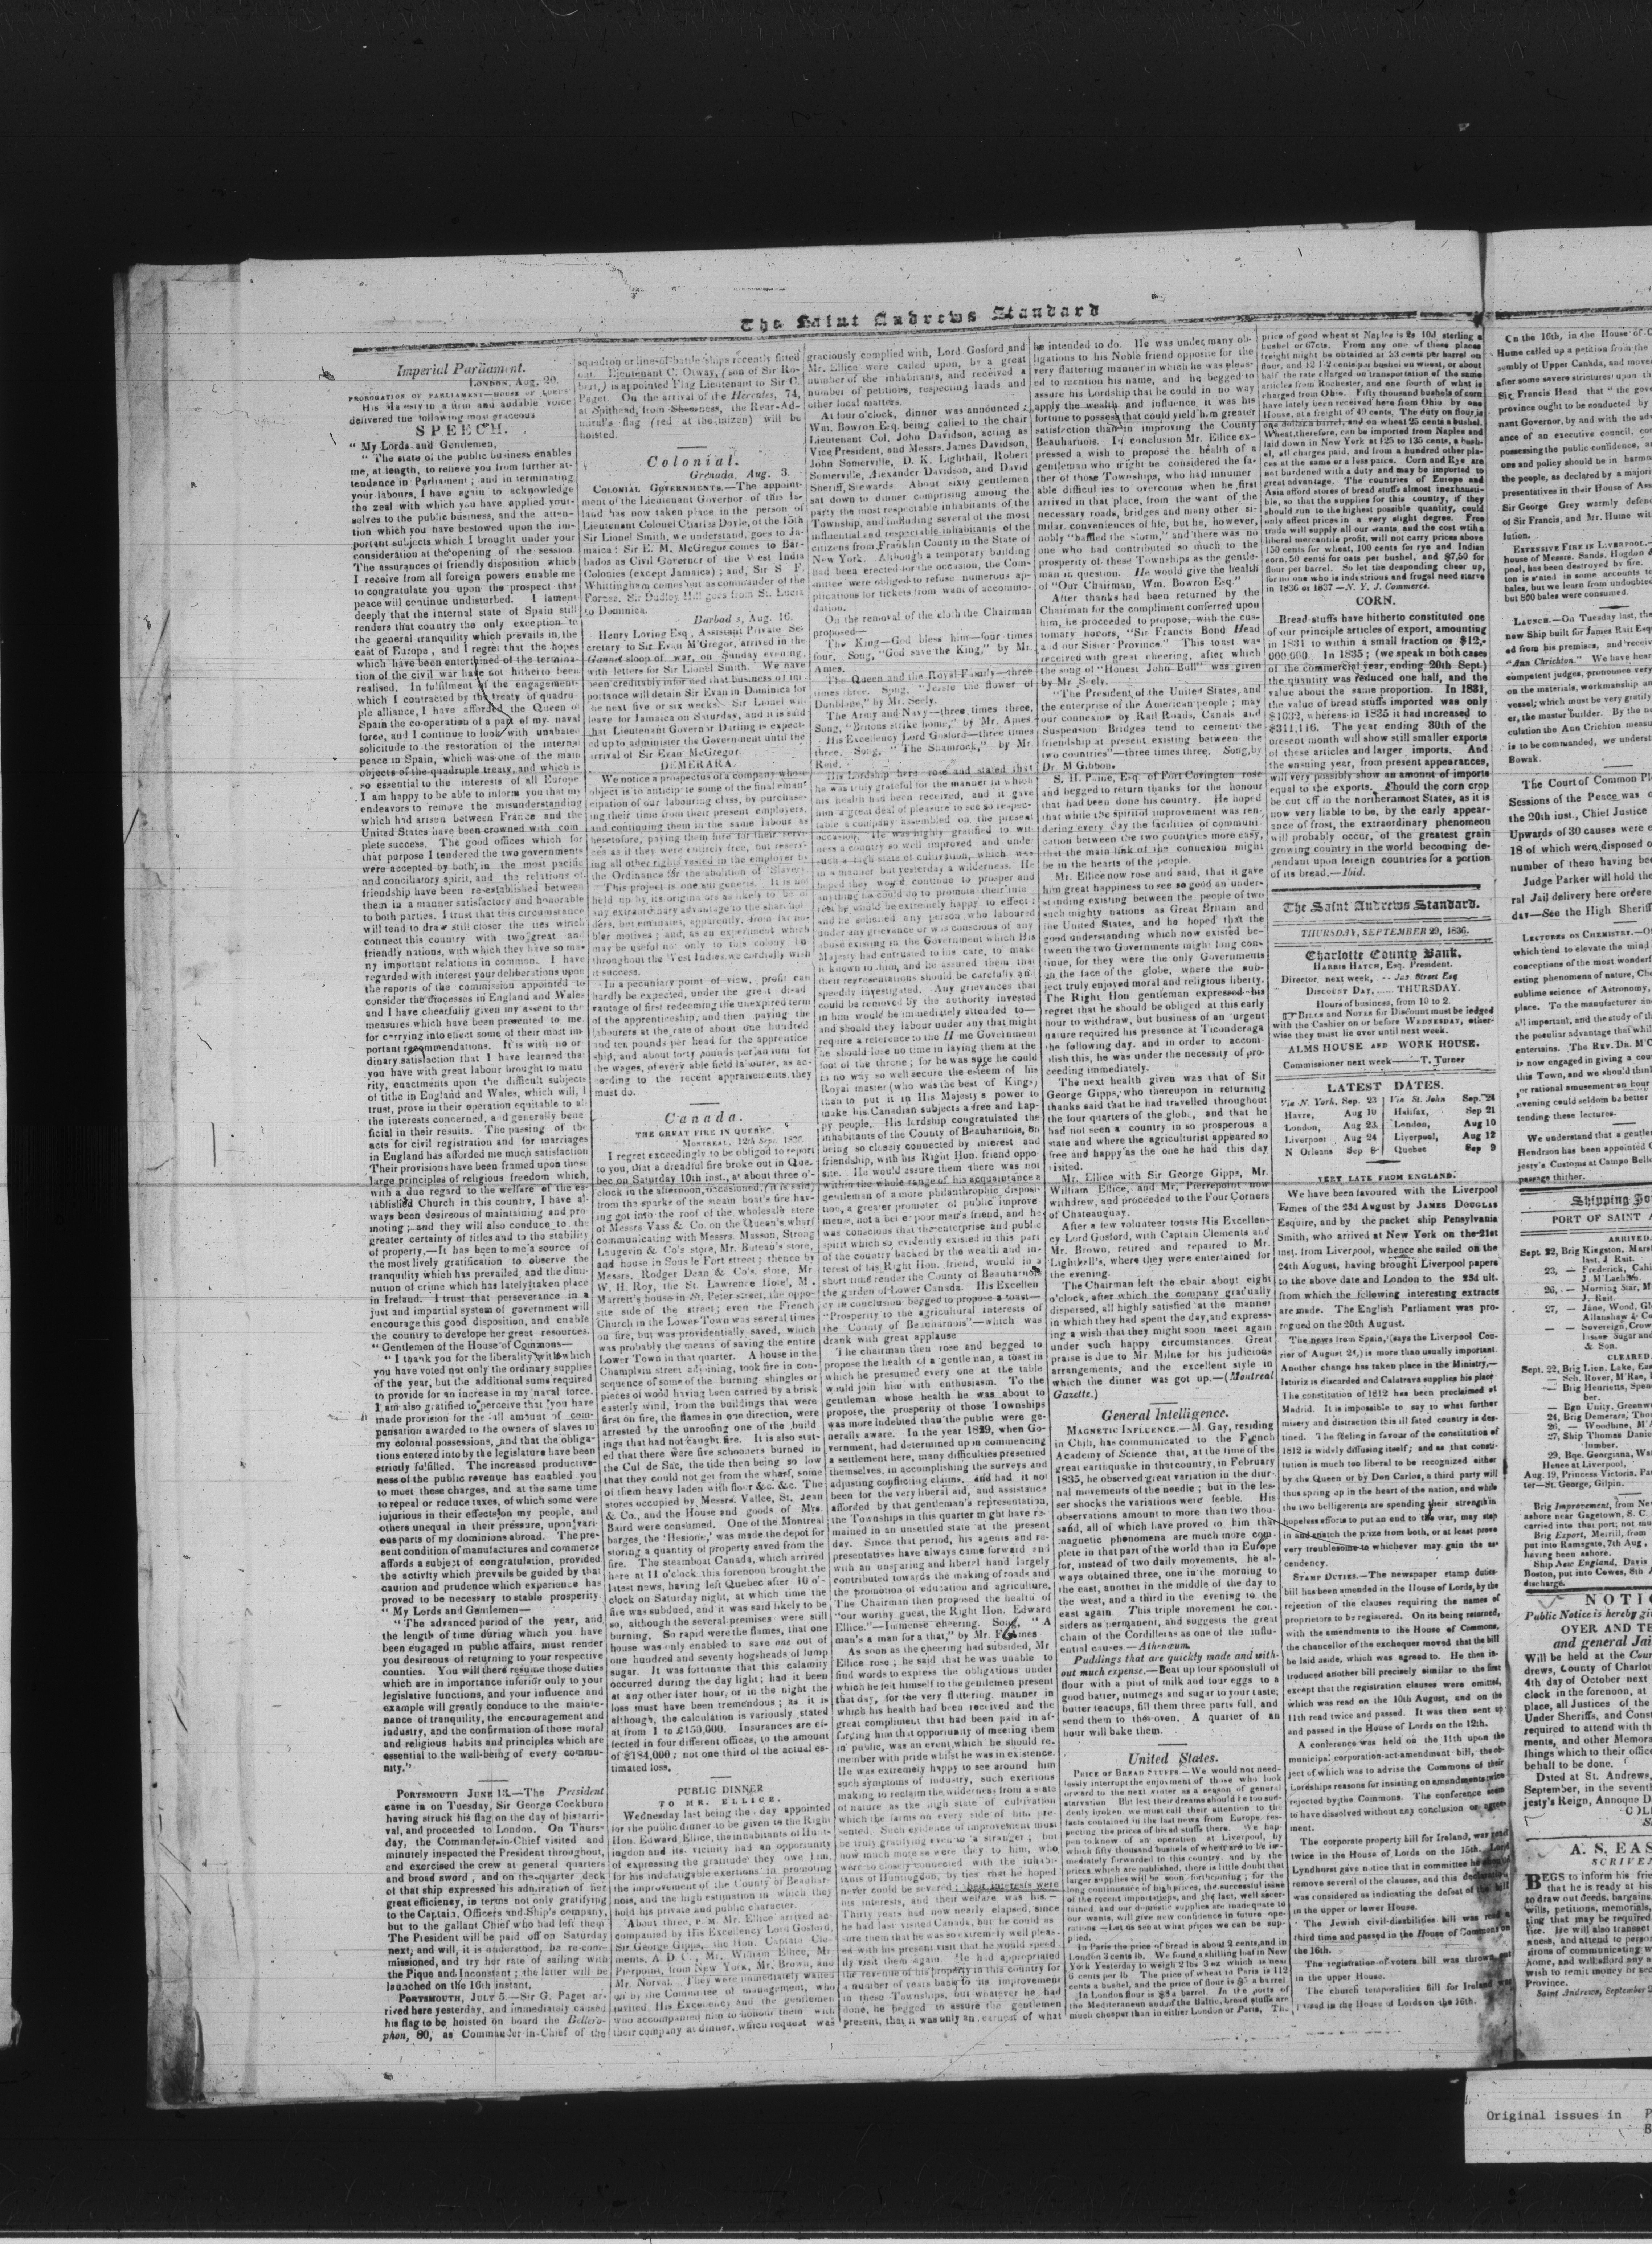 The Saint Andrews Standard
Imperial Parliament.
LONDON, Aug. 20.
PROROGATION OF PARLIAMENT—HOUSE OF LORDS
His Majesty in a firm and audible voice
delivered the following most gracious
SPEECH.
" My Lords and Gentlemen,
" The state of the public business enables
me, at length, to relieve you from further at-
tendance in Parliament ; and in terminating
your labours, I have again to acknowledge
the zeal with which you have applied your-
selves to the public business, and the atten-
tion which you have bestowed upon the im-
portant subjects which I brought under your
consideration at the opening of the session.
The assurances of friendly disposition which
I receive from all foreign powers enable me
to congratulate you upon the prospect that
peace will continue undisturbed. I lament
deeply that the internal state of Spain still
renders that country the only exception to
the general tranquility which prevails in the
east of Europe , and I regret that the hopes
which have been entertained of the termina-
tion of the civil war have not hitherto been
realised. In fulfilment of the engagement
which I contracted by the treaty of quadru-
ple alliance, I have afforded the Queen of
Spain the co-operation of a part of my naval
force, and I continue to look with unabate
solicitude to the restoration of the internal
peace in Spain, which was one of the main
objects of the quadruple treaty, and which is
so essential to the interests of all Europe
I am happy to be able to inform you that my
endeavors to remove the misunderstanding
which had arisen between France and the
United States have been crowned with com
plete success. The good offices which for
that purpose I tendered the two governments
were accepted by both, in the most pacific
and conciliatory spirit, and the relations of
friendship have been re-established between
them in a manner satisfactory and honorable
to both parties. I trust that this circumstance
will tend to draw still closer the ties which
connect this country with two great and
friendly nations, with which they have so ma-
ny important relations in common. I have
regarded with interest your deliberations upon
the reports of the commission appointed to
consider the diocesses in England and Wales
and I have cheerfully given my assent to the
measures which have been presented to me
for carrying into effect some of their most im-
portant recommendations. It is with no or-
dinary satisfaction that I have learned that
you have with great labour brought to matu
rity, enactments upon the difficult subjects
of tithe in England and Wales, which will, I
trust, prove in their operation equitable to all
the interests concerned, and generally bene
ficial in their results. The passing of the
acts for civil registration and for marriages
in England has afforded me much satisfaction
Their provisions have been framed upon those
large principles of religious freedom which,
with a due regard to the welfare of the es-
tablished Church in this country, I have al-
ways been desireous of maintaining and pro
moting ;—and they will also conduce to the
greater certainty of titles and to the stability
of property.—It has been to me a source of
the most lively gratification to observe the
tranquility which has prevailed and the dimi-
nution of crime which has lately taken place
in Ireland. I trust that perseverance in a
just and impartial system of government will
encourage this good disposition, and enable
the country to develope her great resources.
" Gentlemen of the House of Commons—
" I thank you for the liberality with which
you have voted not only the ordinary supplies
of the year, but the additional sums required
to provide for an increase in my naval force.
I am also gratified to perceive that you have
made provision for the full amount of com-
pensation awarded to the owners of slaves in
my colonial possessions, and that the obliga-
tions entered into by the legislature have been
strictly fulfilled. The increased productive-
ness of the public revenue has enabled you
to meet these charges, and at the same time
to repeal or reduce taxes, of which some were
injurious in their effects on my people, and
others unequal in their pressure, upon vari-
ous parts of my dominions abroad. The pre-
sent condition of manufactures and commerce
affords a subject of congratulation, provided
the activity which prevails be guided by that
caution and prudence which experience has
proved to be necessary to stable prosperity.
" My Lords and Gentlemen—
" The advanced period of the year, and
the length of time during which you have
been engaged in public affairs, must render
you desireous of returning to your respective
counties. You will there resume those duties
which are in importance inferior only to your
legislative functions, and your influence and
example will greatly conduce to the mainte-
nance of tranquility, the encouragement and
industry, and the confirmation of those moral
and religious habits and principles which are
essential to the well-being of every commu-
nity."
PORTSMOUTH JUNE 13.—The President
came in on Tuesday, Sir George Cockburn
having struck his flag on the day of his arri-
val, and proceeded to London. On Thurs-
day, the Commander-in-Chief visited and
minutely inspected the President throughout,
and exercised the crew at general quarters
and broad sword , and on the quarter deck
of that ship expressed his admiration of her
great efficiency, in terms not only gratifying
to the Captain, Officers and Ship's company,
but to the gallant Chief who had left them
The President will be paid off on Saturday
next; and will, it is understood, be re-com-
missioned, and try her rate of sailing with
the Pique and Inconstant ; the latter will be
launched on the 16th instant.
PORTSMOUTH, JULY 5.—Sir G. Paget ar-
rived here yesterday, and immediately caused
his flag to be hoisted on board the Bellero-
phon, 80, as Commander in-Chief of the
squadron or line-of-battle ships recently fitted
out. Lieutenant C. Otway, (son of Sir Ro-
bert,) is appointed Flag Lieutenant to Sir C.
Paget. On the arrival of the Hercules, 74,
at Spithead, from Sheerness, the Rear-Ad-
miral's flag (red at the mizen) will be
hoisted.
Colonial.
Grenada, Aug. 3.
COLONIAL GOVERNMENTS.—The appoint-
ment of the Lieutenant Governor of this Is-
land has now taken place in the person of
Lieutenant Colonel Charles Doyle, of the 15th
Sir Lionel Smith, we understand, goes to Ja-
maica : Sir E. M. McGregor comes to Bar-
bados as Civil Governor of the West India
Colonies (except Jamaica) ; and, Sir S F.
Whittingham comes but as commander of the
Forces. Sir Dudley Hill goes from St. Lucia
to Dominica.
Barbad s, Aug. 16.
Henry Loving Esq , Assistant Private Se-
cretary to Sir Evan M'Gregor, arrived in the
Gannet sloop of war, on Sunday evening,
with letters for Sir Lionel Smith. We have
been creditably informed that business of im
portance will detain Sir Evan in Dominica for
the next five or six weeks. Sir Lionel will
leave for Jamaica on Saturday, and it is said
that Lieutenant Governor Darling is expect-
ed up to administer the Government until the
arrival of Sir Evan McGregor.
DEMERARA.
We notice a prospectus of a company whose
object is to anticipate some of the final eman
cipation of our labouring class, by purchase-
ing their time from their present employers,
and continuing them in the same labour as
heretofore, paying them hire for their servi-
ces as if they were entirely free, but reserv-
ing all other rights vested in the employer by
the Ordinance for the abolition of Slavery
This project is one sui generis. It is not
held up by its originators as likely to be of
any extraordinary advantage to the sharehol-
ders, but emanates, apparently, from far no-
bler motives ; and, as an experiment which
may be useful not only to this colony but
throughout the West Indies, we cordially wish
it success.
In a pecuniary point of view, profit can
hardly be expected, under the great disad-
vantage of first redeeming the unexpired term
of the apprenticeship, and then paying the
labourers at the rate of about one hundred
and ten pounds per head for the apprentice
ship, and about forty pounds per annum for
the wages, of every able field labourer, as ac-
cording to the recent appraisements they
must do.
Canada.
THE GREAT FIRE IN QUEBEC.
MONTREAL, 12th Sept. 1836.
I regret exceedingly to be obliged to report
to you, that a dreadful fire broke out in Que-
bec on Saturday 10th inst., at about three o'-
clock in the afternoon, occasioned, (it is said)
from the sparks of the steam boat's fire hav-
ing got into the roof of the wholesale store
of Messrs Vass & Co. on the Queen's wharf
communicating with Messrs. Masson, Strong
Laugevin & Co's store, Mr. Buteau's store,
and house in Sous le Fort street ; thence by
Messrs, Rodger Dean & Co's. store, Mr
W. H. Roy, the St. Lawrence Hotel, M.
Marrett's house in St. Peter street, the oppo-
site side of the street ; even the French
Church in the Lower Town was several times
on fire, but was providentially saved, which
was probably the means of saving the entire
Lower Town in that quarter. A house in the
Champlain street adjoining, took fire in con-
sequence of some of the burning shingles or
pieces of wood having been carried by a brisk
easterly wind, from the buildings that were
first on fire, the flames in one direction, were
arrested by the unroofing one of the build
ings that had not caught fire. It is also stat-
ed that there were five schooners burned in
the Cul de Sac, the tide then being so low
that they could not get from the wharf, some
of them heavy laden with flour &c. &c. The
stores occupied by Messrs. Vallee, St. Jean
& Co., and the House and goods of Mrs.
Baird were consumed. One of the Montreal
barges, the 'Hesione,' was made the depot for
storing a quantity of property saved from the
fire. The steamboat Canada, which arrived
here at 11 o'clock this forenoon brought the
latest news, having left Quebec after 10 o'-
clock on Saturday night, at which time the
fire was subdued, and it was said likely to be
so, although the several premises were still
burning. So rapid were the flames, that one
house was only enabled to save one out of
one hundred and seventy hogsheads of lump
sugar. It was fortunate that this calamity
occurred during the day light ; had it been
at any other later hour, or in the night the
loss must have been tremendous ; as it is
although, the calculation is variously stated
at from 1 to £150,000. Insurances are ef-
fected in four different offices, to the amount
of $184,000 ; not one third of the actual es-
timated loss.
PUBLIC DINNER
TO MR. ELLICE.
Wednesday last being the day appointed
for the public dinner to be given to the Right
Hon. Edward Ellice, the inhabitants of Hunt-
ingdon and its vicinity had an opportunity
of expressing the gratitude they owe him,
for his indefatigable exertions in promoting
the improvement of the County of Beauhar-
nois, and the high estimation in which they
hold his private and public character.
About three, P. M. Mr. Ellice arrived ac-
companied by His Excellency Lord Gosford,
Sir George Gipps, the Hon. Captain Cle-
ments, A D C., Mr. William Ellice, Mr
Pierpoint, from New York, Mr. Brown, and
Mr. Norval. They were immediately waited
on by the Committee of management, who
invited His Excellency and the gentlemen
who accompanied him to honour them with
their company at dinner, which request was
graciously complied with, Lord Gosford and
Mr. Ellice were called upon, by a great
number of the inhabitants, and received a
number of petitions, respecting lands and
other local matters.
At four o'clock, dinner was announced ;
Wm. Bowron Esq. being called to the chair
Lieutenant Col. John Davidson, acting as
Vice President, and Messrs. James Davidson,
John Somerville, D. K. Lighthall, Robert
Somerville, Alexander Davidson, and David
Sheriff, Stewards. About sixty gentlemen
sat down to dinner comprising among the
party the most respectable inhabitants of the
Township, and including several of the most
influential and respectable inhabitants of the
citizens from Franklin County in the State of
New York. Although a temporary building
had been erected for the occasion, the Com-
mittee were obliged to refuse numerous ap-
plications for tickets from want of accommo-
dation.
On the removal of the cloth the Chairman
proposed—
The King—God bless him—four times
four. Song, "God save the King," by Mr.
Ames.
The Queen and the Royal Family—three
times three. Song, "Jessie the flower of
Dunblane," by Mr. Seely.
The Army and Navy—three times three,
Song, "Britons strike home," by Mr. Ames
His Excellency Lord Gosford—three times
three. Song, " The Shamrock," by Mr.
Reid.
His Lordship here rose and stated that
he was truly grateful for the manner in which
his health had been received, and it gave
him a great deal of pleasure to see so respec-
table a company assembled on the present
occasion. He was highly gratified to wit-
ness a country so well improved and under
such a high state of cultivation, which was
in a manner but yesterday a wilderness. He
hoped they would continue to prosper and
anything he could do to promote their inte
rest he would be extremely happy to effect ;
and he solicited any person who laboured
under any grievance or was conscious of any
abuse existing in the Government which His
Majesty had entrusted to his care, to make
it known to him, and he assured them that
their representations should be carefully and
speedily investigated. Any grievances that
could be removed by the authority invested
in him would be immediately attended to—
and should they labour under any that might
require a reference to the H me Government
he should lose no time in laying them at the
foot of the throne ; for he was sure he could
in no way so well secure the esteem of his
Royal master (who was the best of Kings)
than to put it in His Majesty's power to
make his Canadian subjects a free and hap-
py people. His lordship congratulated the
inhabitants of the County of Beauharnois, on
being so closely connected by interest and
friendship, with his Right Hon. friend oppo-
site. He would assure them there was not
within the whole range of his acquaintance a
gentleman of a more philanthropic disposi-
tion, a greater promoter of public improve
ments, not a better poor man's friend, and he
was conscious that the enterprise and public
spirit which so evidently existed in this part
of the country backed by the wealth and in-
terest of his Right Hon. friend, would in a
short time render the County of Beauharnois
the garden of Lower Canada. His Excellen
cy in conclusion begged to propose a toast—
"Prosperity to the agricultural interests of
the County of Beauharnois"—which was
drank with great applause
The chairman then rose and begged to
propose the health of a gentleman, a toast in
which he presumed every one at the table
would join him with enthusiasm. To the
gentleman whose health he was about to
propose, the prosperity of those Townships
was more indebted than the public were ge-
nerally aware. In the year 1829, when Go-
vernment, had determined upon commencing
a settlement here, many difficulties presented
themselves, in accomplishing the surveys and
adjusting conflicting claims, and had it not
been for the very liberal aid, and assistance
afforded by that gentleman's representation,
the Townships in this quarter might have re-
mained in an unsettled state at the present
day. Since that period, his agents and re-
presentatives have always come forward and
with an unsparing and liberal hand largely
contributed towards the making of roads and
the promotion of education and agriculture,
The Chairman then proposed the health of
"our worthy guest, the Right Hon. Edward
Ellice."—Immense cheering. Song, "A
man's a man for a that," by Mr. F. Ames
As soon as the cheering had subsided, Mr
Ellice rose ; he said that he was unable to
find words to express the obligations under
which he felt himself to the gentlemen present
that day, for the very flattering manner in
which his health had been received and the
great compliment that had been paid in af-
forging him that opportunity of meeting them
in public, was an event which he should re-
member with pride whilst he was in existence.
He was extremely happy to see around him
such symptoms of industry, such exertions
making to reclaim the wilderness from a state
of nature as the high state of cultivation
which the farms on every side of him pre-
sented. Such evidence of improvement must
be truly gratifying even to a stranger ; but
how much more so were they to him, who
were so closely connected with the inhabi-
tants of Huntingdon, by ties that he hoped
never could be severed ; their interests were
his interests, and their welfare was his.—
Thirty years had now nearly elapsed, since
he had last visited Canada, but he could as
sure them that he was so extremely well pleas-
ed with his present visit that he would speed
ily visit them again He had appropriated
the revenue of his property in this country for
a number of years back to its improvement
in these Townships, but whatever he had
done, he begged to assure the gentlemen
present, that it was only an earnest of what
he intended to do. He was under many ob-
ligations to his Noble friend opposite for the
very flattering manner in which he was pleas-
ed to mention his name, and he begged to
assure his Lordship that he could in no way
apply the wealth and influence it was his
fortune to possess that could yield him greater
satisfaction than in improving the County
Beauharnois. In conclusion Mr. Ellice ex-
pressed a wish to propose the health of a
gentleman who might be considered the fa-
ther of those Townships, who had innumer
able difficulties to overcome when he first
arrived in that place, from the want of the
necessary roads, bridges and many other si-
milar conveniences of life, but he, however,
nobly "baffled the storm," and there was no
one who had contributed so much to the
prosperity of these Townships as the gentle-
man in question. He would give the health
of "Our Chairman, Wm. Bowron Esq."
After thanks had been returned by the
Chairman for the compliment conferred upon
him, he proceeded to propose, with the cus-
tomary honors, "Sir Francis Bond Head
and our Sister Province." This toast was
received with great cheering, after which
the song of "Honest John Bull" was given
by Mr Seely.
"The President of the United States, and
the enterprise of the American people ; may
our connexion by Rail Roads, Canals and
Suspension Bridges tend to cement the
friendship at present existing between the
two countries"—three times three. Song, by
Dr. M Gibbon.
S. H. Paine, Esq. of Fort Covington rose
and begged to return thanks for the honour
that had been done his country. He hoped
that while the spirit of improvement was ren-
dering every day the facilities of communi-
cation between the two countries more easy,
that the main link of the connexion might
be in the hearts of the people.
Mr. Ellice now rose and said, that it gave
him great happiness to see so good an under-
standing existing between the people of two
such mighty nations as Great Britain and
the United States, and he hoped that the
good understanding which now existed be-
tween the two Governments might long con-
tinue, for they were the only Governments
on the face of the globe, where the sub-
ject truly enjoyed moral and religious liberty.
The Right Hon gentleman expressed his
regret that he should be obliged at this early
hour to withdraw, but business of an urgent
nature required his presence at Ticonderaga
the following day, and in order to accom-
plish this, he was under the necessity of pro-
ceeding immediately.
The next health given was that of Sir
George Gipps, who thereupon in returning
thanks said that he had travelled throughout
the four quarters of the globe, and that he
had not seen a country in so prosperous a
state and where the agriculturist appeared so
free and happy as the one he had this day
visited.
Mr. Ellice with Sir George Gipps, Mr.
William Ellice, and Mr. Pierrepoint now
withdrew, and proceeded to the Four Corners
of Chateauguay.
After a few volunteer toasts His Excellen-
cy Lord Gosford, with Captain Clements and
Mr. Brown, retired and repaired to Mr.
Lighthall's, where they were entertained for
the evening.
The Chairman left the chair about eight
o'clock, after which the company gradually
dispersed, all highly satisfied at the manner
in which they had spent the day, and express-
ing a wish that they might soon meet again
under such happy circumstances. Great
praise is due to Mr Milne for his judicious
arrangements, and the excellent style in
which the dinner was got up.—(Montreal
Gazette.)
General Intelligence.
MAGNETIC INFLUENCE.—M. Gay, residing
in Chili, has communicated to the French
Academy of Science that, at the time of the
great earthquake in that country, in February
1835, he observed great variation in the diur-
nal movements of the needle ; but in the les-
ser shocks the variations were feeble. His
observations amount to more than two thou-
sand, all of which have proved to him that
magnetic phenomena are much more com-
plete in that part of the world than in Europe
for, instead of two daily movements, he al-
ways obtained three, one in the morning to
the east, another in the middle of the day to
the west, and a third in the evening to the
east again This triple movement he con-
siders as permanent, and suggests the great
chain of the Cordilleras as one of the influ-
ential causes.—Athenæum.
Puddings that are quickly made and with-
out much expense.—Beat up four spoonsfull of
flour with a pint of milk and four eggs to a
good batter, nutmegs and sugar to your taste;
butter teacups, fill them three parts full, and
send them to the oven. A quarter of an
hour will bake them.
United States.
PRICE OF BREAD STUFFS.—We would not need-
lessly interrupt the enjoyment of those who look
forward to the next winter as a season of general
starvation But lest their dreams should be too sud-
denly broken, we must call their attention to the
facts contained in the last news from Europe, res-
pecting the prices of bread stuffs there. We hap-
pen to know of an operation at Liverpool, by
which fifty thousand bushels of wheat are to be im-
mediately forwarded to this country, and by the
prices which are published, there is little doubt that
larger supplies will be soon forthcoming ; for the
long continuance of high prices, the successful issue
of the recent importations, and the fact, well ascer-
tained, and our domestic supplies are inadequate to
our wants, will give new confidence in future ope-
rations—Let us see at what prices we can be sup-
plied.
In Paris the price of bread is about 2 cents, and in
London 3 cents lb. We found a shilling loaf in New
York Yesterday to weigh 2 lbs 3 oz which is near
6 cents per lb The price of wheat in Paris is 112
cents a bushel, and the price of flour is $5 a barrel.
In London flour is $8 a barrel. In the ports of
the Mediteranean and of the Baltic, bread stuffs are
much cheaper than in either London or Paris, The
price of good wheat at Naples is 2s 10d sterling a
bushel or 67cts. From any one of those places
freight might be obtained at 53 cents per barrel on
flour, and 12 1-2 cents per bushel on wheat, or about
half the rate charged on transportation of the same
articles from Rochester, and one fourth of what is
charged from Ohio. Fifty thousand bushels of corn
have lately been received here from Ohio by one
House, at a freight of 49 cents. The duty on flour is
one dollar a barrel, and on wheat 25 cents a bushel.
Wheat, therefore, can be imported from Naples and
laid down in New York at 125 to 135 cents, a bush-
el, all charges paid, and from a hundred other pla-
ces at the same or a less price. Corn and Rye are
not burdened with a duty and may be imported to
great advantage. The countries of Europe and
Asia afford stores of bread stuffs almost inexhausti-
ble, so that the supplies for this country, if they
should run to the highest possible quantity, could
only affect prices in a very slight degree. Free
trade will supply all our wants and the cost wtih a
liberal mercantile profit, will not carry prices above
150 cents for wheat, 100 cents for rye and Indian
corn, 50 cents for oats per bushel, and $7,50 for
flour per barrel. So let the desponding cheer up,
for no one who is industrious and frugal need starve
in 1836 or 1837—N. Y. J. Commerce.
CORN.
Bread stuffs have hitherto constituted one
of our principle articles of export, amounting
in 1831 to within a small fraction os $12,-
000,000. In 1835 ; (we speak in both cases
of the commercial year, ending 20th Sept.)
the quantity was reduced one half, and the
value about the same proportion. In 1831,
the value of bread stuffs imported was only
$1032, whereas in 1835 it had increased to
$311,116. The year ending 30th of the
present month will show still smaller exports
of these articles and larger imports. And
the ensuing year, from present appearances,
will very possibly show an amount of imports
equal to the exports. Should the corn crop
be cut off in the northeramost States, as it is
now very liable to be, by the early appear-
ance of frost, the extraordinary phenomeon
will probably occur, of the greatest grain
growing country in the world becoming de-
pendant upon foreign countries for a portion
of its bread.—Ibid.
The Saint Andrews Standard.
THURSDAY, SEPTEMBER 29, 1836.
Charlotte County Bank.
HARRIS HATCH, Esq. President.
Director next week, .. Jas Street Esq
DISCOUNT DAY, ...... THURSDAY.
Hours of business, from 10 to 2.
BILLS and NOTES for Discount must be lodged
with the Cashier on or before WEDNESDAY, other-
wise they must lie over until next week.
ALMS HOUSE AND WORK HOUSE.
Commissioner next week——T. Turner
LATEST DATES.
Via N. York, Sep. 23 | Via St. John Sep. 24
Havre, Aug 10 | Halifax, Sep 21
London, Aug 23 | London, Aug 10
Liverpool Aug 24 | Liverpool, Aug 12
N Orleans Sep 8 | Quebec Sep 9
VERY LATE FROM ENGLAND.
We have been favoured with the Liverpool
Times of the 23d August by JAMES DOUGLAS
Esquire, and by the packet ship Pensylvania
Smith, who arrived at New York on the 21st
inst. from Liverpool, whence she sailed on the
24th August, having brought Liverpool papers
to the above date and London to the 23d ult.
from which the following interesting extracts
are made. The English Parliament was pro-
rogued on the 20th August.
The news from Spain, (says the Liverpool Cou-
rier of August 24,) is more than usually important.
Another change has taken place in the Ministry,—
Isturiz is discarded and Calatrava supplies his place
The constitution of 1812 has been proclaimed at
Madrid. It is impossible to say to what further
misery and distraction this ill fated country is des-
tined. The feeling in favour of the constitution of
1812 is widely diffusing itself ; and as that consti-
tution is much too liberal to be recognized either
by the Queen or by Don Carlos, a third party will
thus spring up in the heart of the nation, and while
the two belligerents are spending their strength in
hopeless efforts to put an end to the war, may step
in and snatch the prize from both, or at least prove
very troublesome to whichever may gain the as-
cendency.
STAMP DUTIES.—The newspaper stamp duties
bill has been amended in the House of Lords, by the
rejection of the clauses requiring the names of
proprietors to be registered. On its being returned,
with the amendments to the House of Commons,
the chancellor of the exchequer moved that the bill
be laid aside, which was agreed to. He then in-
troduced another bill precisely similar to the first
except that the registration clauses were omitted,
which was read on the 10th August, and on the
11th read twice and passed. It was then sent up
and passed in the House of Lords on the 12th.
A conference was held on the 11th upon the
municipal corporation-act-amendment bill, the ob-
ject of which was to advise the Commons of their
Lordships reasons for insisting on amendments
rejected by the Commons. The conference seem
to have dissolved without any conclusion or agree-
ment.
The corporate property bill for Ireland, was read
twice in the House of Lords on the 15th. Lord
Lyndhurst gave notice that in committee he should
remove several of the clauses, and this
was considered as indicating the defeat of the bill
in the upper or lower House.
The Jewish civil-disabilities bill was read a
third time and passed in the House of Commons on
the 16th.
The registration-of-voters bill was thrown out
in the upper House.
The church temporalities bill for Ireland was
passed in the House of Lords on the 16th.
On the 16th, in the House of C
Hume called up a petition from the
sembly of Upper Canada, and move
after some severe strictures upon th
Sir, Francis Head that " the gove
province ought to be conducted by
nant Governor, by and with the adv
ance of an executive council, con
possessing the public confidence, an
ons and policy should be in harmo
the people, as declared by a majori
presentatives in their House of Ass
Sir George Grey warmly defend
of Sir Francis, and Mr. Hume wit
lution.
EXTENSIVE FIRE IN LIVERPOOL.—
house of Messrs. Sands, Hogdon &
pool, has been destroyed by fire.
ton is stated in some accounts to
bales, but we learn from undoubted
but 800 bales were consumed.
LAUNCH.—On Tuesday last, the
new Ship built for James Rait Esq
ed from his premises, and receiv
"Ann Chrichton." We have hear
competent judges, pronounce very
on the materials, workmanship an
vessel; which must be very gratify
er, the master builder. By the ne
culation the Ann Crichton measur
is to be commanded, we underst
Bowak.
The Court of Common Pl
Sessions of the Peace was o
the 20th inst., Chief Justice
Upwards of 30 causes were e
18 of which were disposed o
number of these having bee
Judge Parker will hold the
ral Jail delivery here ordere
day—See the High Sheriff
LECTURES ON CHEMISTRY.—Of
which tend to elevate the mind
conceptions of the most wonderf
esting phenomena of nature, Che
sublime science of Astronomy,
place. To the manufacturer and
all important, and the study of th
the peculiar advantage that whil
entertains. The REV. DR. M'C
is now engaged in giving a cou
this Town, and we should think
or rational amusement an hour
evening could seldom be better
tending these lectures.
We understand that a gentle
Hendrzon has been appointed C
jesty's Customs at Campo Bello
passage thither.
Shipping Jo
PORT OF SAINT A
ARRIVED,
Sept. 22, Brig Kingston, Mars
last, J Rait.
23, — Frederick, Cahi
J. M'Lachlan.
26, — Morning Star, M
J. Rait
27, — Jane, Wood, Gl
Allanshaw & Co
— — Sovereign, Crow
Sugar and
& Son.
CLEARED,
Sept. 22, Brig Lien. Lake, Eas
— Sch. Rover, M'Rae, B
— Brig Henrietta, Spen
ber.
— Bgn Unity, Greenw
24, Brig Demerara, Tho
26, — Woodbine, M'A
27, Ship Thomas Danie
lumber.
29, Bqe. Georgiana, Wa
Hence at Liverpool,
Aug. 19, Princess Victoria, Pa
ter—St. George, Gilpin.
Brig Improvement, from Ne
ashore near Gagetown, S. C.
carried into that port; not mu
Brig Export, Merrill, from
put into Ramsgate, 7th Aug ,
having been ashore.
Ship New England, Davis
Boston, put into Cowes, 8th A
discharge.
NOTIC
Public Notice is hereby gi
OVER AND TE
and general Jai
Will be held at the Cour
drews, County of Charlot
4th day of October next
clock in the forenoon, at
place, all Justices of the
Under Sheriffs, and Const
required to attend with th
ments, and other Memora
things which to their office
behalf to be done.
Dated at St. Andrews,
September, in the seventh
jesty's Reign, Annoque D
COLI
S
A. S. EAS
SCRIVEN
BEGS to inform his frie
that he is ready at his
to draw out deeds, bargains
wills, petitions, memorials,
ting that may be required
tice. He will also transact
ness, and attend to person
sirous of communicating w
home, and will afford any s
wish to remit money or acc
Province.
Saint Andrews, September 2
Original issues in P
B